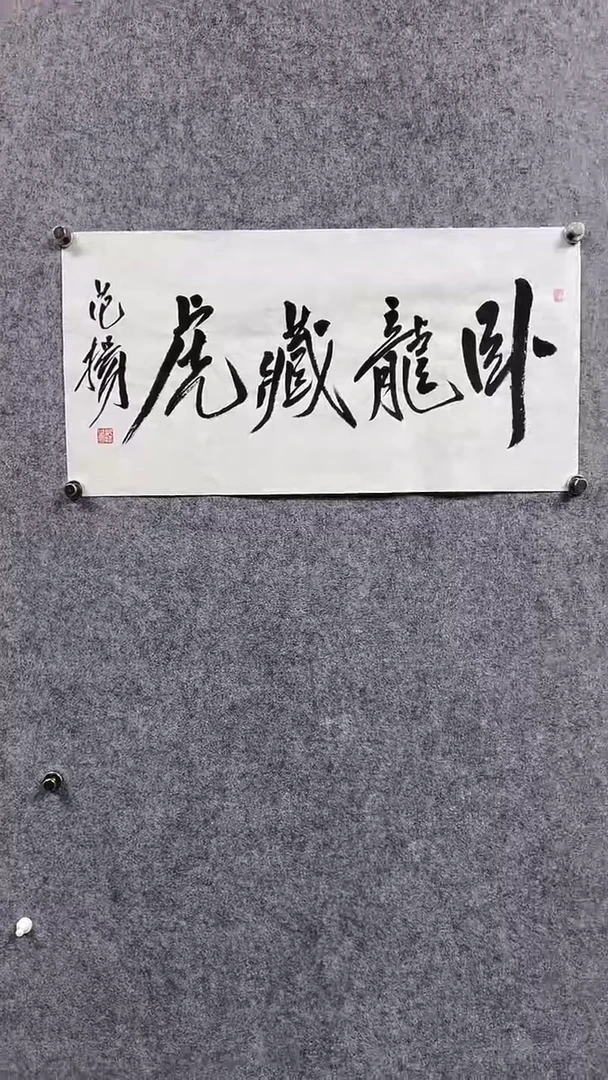 卧龍藏虎
范揚